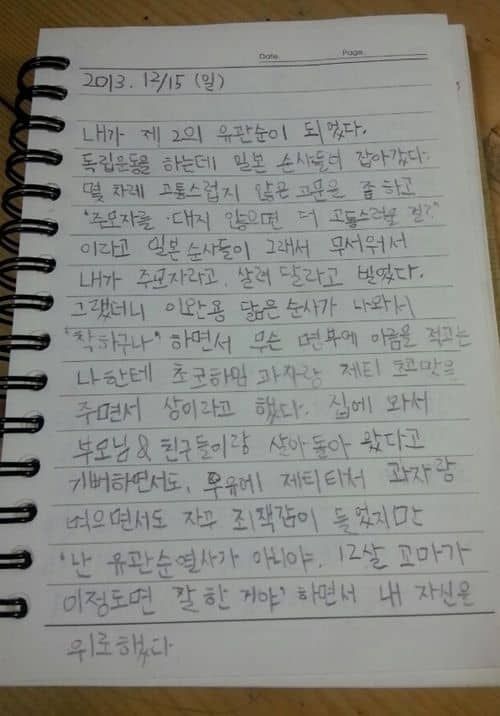 Date. Page.
2013. 12/15 (일)
내가 제 2의 유관순이 되었다.
독립운동을 하는데 일본 순사들이 잡아갔다.
몇 차례 고통스럽지 않은 고문을 좀 하고
"주모자를 대지 않으면 더 고통스러울 걸?"
이라고 일본순사들이 그래서 무서워서
내가 주모자라고, 살려 달라고 빌었다.
그랬더니 이완용 닮은 순사가 나와서
"착하구나" 하면서 무슨 명부에 이름을 적고는
나한테 초코하임 과자랑 제티 초코맛을
주면서 상이라고 했다. 집에 와서
부모님 & 친구들이랑 살아돌아 왔다고
기뻐하면서도, 우유에 제티타서 과자랑
먹으면서도 자꾸 죄책감이 들었지만
'난 유관순열사가 아니야. 12살 꼬마가
이정도면 잘 한 거야' 하면서 내 자신을
위로했다